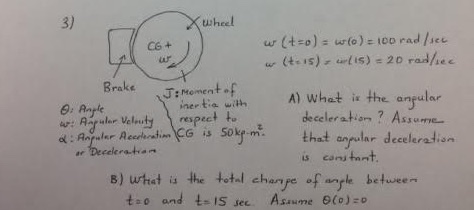 3)
Wheel
CG +
w
w (t=0) = w(0) = 100 rad/sec
w (t=15) = w(15) = 20 rad/sec
Brake
J: Moment of
inertia with
respect to
CG is 50 kg-m²
θ: Angle
w: Angular Velocity
α: Angular Acceleration
or Deceleration
A) What is the angular
deceleration? Assume
that angular deceleration
is constant.
B) What is the total change of angle between
t=0 and t=15 sec. Assume θ(0)=0